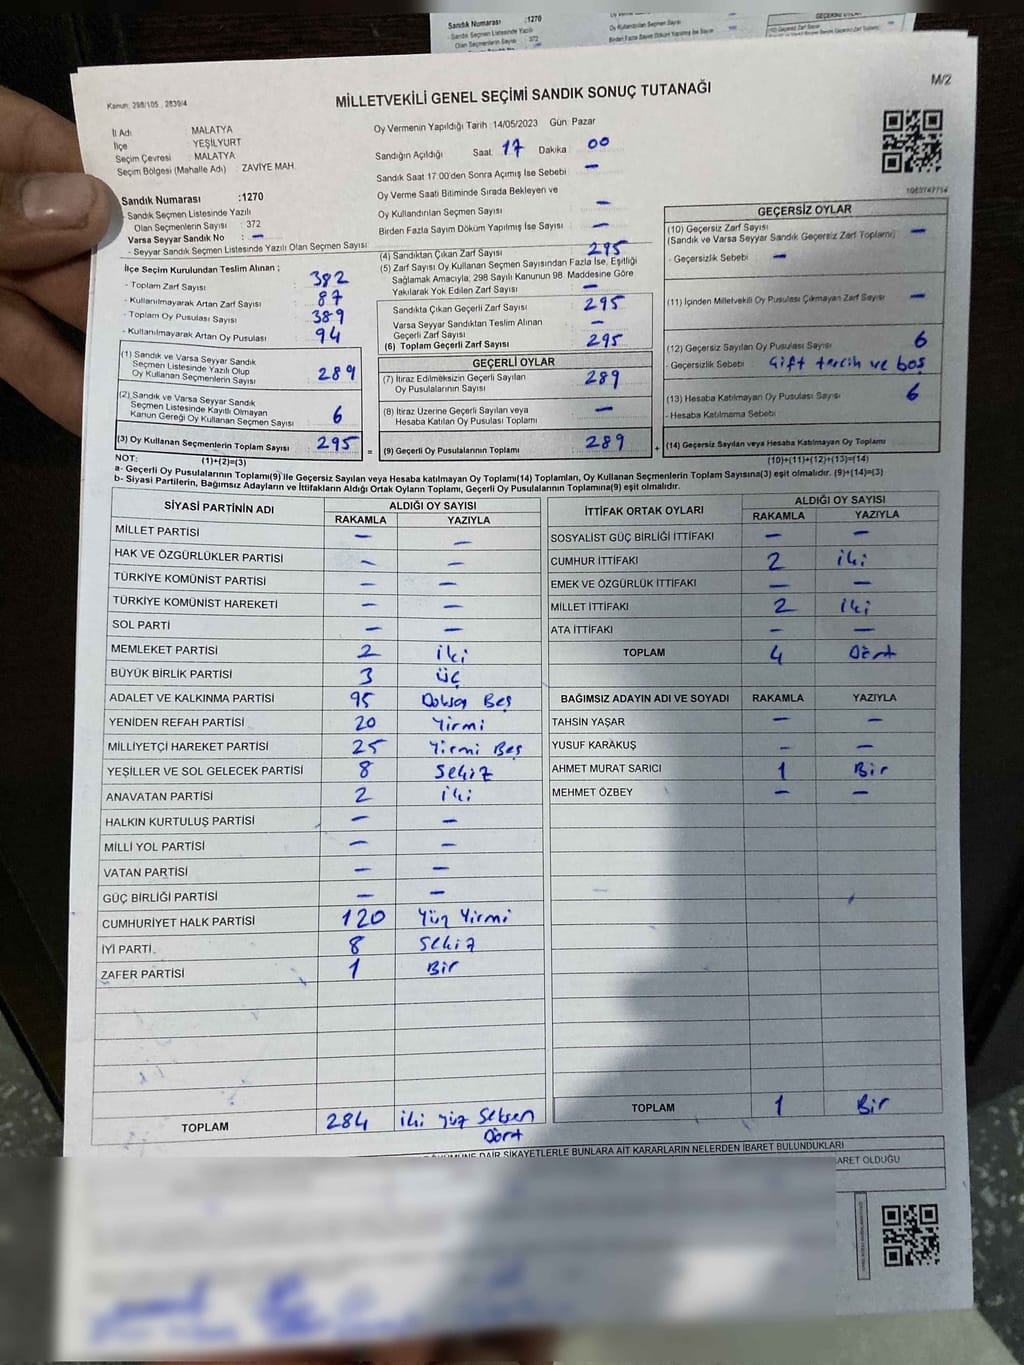 Sandık Numarası :1270
- Sandık Seçmen Listesinde Yazılı
Olan Seçmenlerin Sayısı : 372
Oy Kullandırılan Seçmen Sayısı
Birden Fazla Sayım Döküm Yapılmış İse Sayım
GEÇERSİZ OYLAR
Kanun: 298/105 , 2839/4
MİLLETVEKİLİ GENEL SEÇİMİ SANDIK SONUÇ TUTANAĞI
M/2
İl Adı : MALATYA
İlçe : YEŞİLYURT
Seçim Çevresi : MALATYA
Seçim Bölgesi (Mahalle Adı) : ZAVİYE MAH.
Oy Vermenin Yapıldığı Tarih :14/05/2023 Gün: Pazar
Sandığın Açıldığı Saat: 17 Dakika : 00
Sandık Saat 17:00'den Sonra Açımış İse Sebebi : -
Oy Verme Saati Bitiminde Sırada Bekleyen ve
Oy Kullandırılan Seçmen Sayısı : -
Birden Fazla Sayım Döküm Yapılmış İse Sayısı : -
Sandık Numarası :1270
- Sandık Seçmen Listesinde Yazılı
Olan Seçmenlerin Sayısı : 372
Varsa Seyyar Sandık No : -
- Seyyar Sandık Seçmen Listesinde Yazılı Olan Seçmen Sayısı :
İlçe Seçim Kurulundan Teslim Alınan ;
- Toplam Zarf Sayısı : 382
- Kullanılmayarak Artan Zarf Sayısı : 87
- Toplam Oy Pusulası Sayısı : 389
- Kullanılmayarak Artan Oy Pusulası : 94
(1) Sandık ve Varsa Seyyar Sandık
Seçmen Listesinde Yazılı Olup
Oy Kullanan Seçmenlerin Sayısı : 289
(2) Sandık ve Varsa Seyyar Sandık
Seçmen Listesinde Kayıtlı Olmayan
Kanun Gereği Oy Kullanan Seçmen Sayısı : 6
(3) Oy Kullanan Seçmenlerin Toplam Sayısı : 295
(1)+(2)=(3)
(4) Sandıktan Çıkan Zarf Sayısı : 295
(5) Zarf Sayısı Oy Kullanan Seçmen Sayısından Fazla İse, Eşitliği
Sağlamak Amacıyla, 298 Sayılı Kanunun 98. Maddesine Göre
Yakılarak Yok Edilen Zarf Sayısı : -
Sandıkta Çıkan Geçerli Zarf Sayısı : 295
Varsa Seyyar Sandıktan Teslim Alınan
Geçerli Zarf Sayısı : -
(6) Toplam Geçerli Zarf Sayısı : 295
GEÇERLİ OYLAR
(7) İtiraz Edilmeksizin Geçerli Sayılan
Oy Pusulalarının Sayısı : 289
(8) İtiraz Üzerine Geçerli Sayılan veya
Hesaba Katılan Oy Pusulası Toplamı : -
= (9) Geçerli Oy Pusulalarının Toplamı : 289 +
1063747714
GEÇERSİZ OYLAR
(10) Geçersiz Zarf Sayısı
(Sandık ve Varsa Seyyar Sandık Geçersiz Zarf Toplamı) : -
- Geçersizlik Sebebi : -
(11) İçinden Milletvekili Oy Pusulası Çıkmayan Zarf Sayısı : -
(12) Geçersiz Sayılan Oy Pusulası Sayısı : 6
- Geçersizlik Sebebi : Çift tercih ve boş
(13) Hesaba Katılmayan Oy Pusulası Sayısı : 6
- Hesaba Katılmama Sebebi :
(14) Geçersiz Sayılan veya Hesaba Katılmayan Oy Toplamı
(10)+(11)+(12)+(13)=(14)
NOT:
a- Geçerli Oy Pusulalarının Toplamı(9) İle Geçersiz Sayılan veya Hesaba katılmayan Oy Toplamı(14) Toplamları, Oy Kullanan Seçmenlerin Toplam Sayısına(3) eşit olmalıdır. (9)+(14)=(3)
b- Siyasi Partilerin, Bağımsız Adayların ve İttifakların Aldığı Ortak Oyların Toplamı, Geçerli Oy Pusulalarının Toplamına(9) eşit olmalıdır.
SİYASİ PARTİNİN ADI ALDIĞI OY SAYISI
RAKAMLA YAZIYLA
MİLLET PARTİSİ - -
HAK VE ÖZGÜRLÜKLER PARTİSİ - -
TÜRKİYE KOMÜNİST PARTİSİ - -
TÜRKİYE KOMÜNİST HAREKETİ - -
SOL PARTİ - -
MEMLEKET PARTİSİ 2 iki
BÜYÜK BİRLİK PARTİSİ 3 üç
ADALET VE KALKINMA PARTİSİ 95 Doksan Beş
YENİDEN REFAH PARTİSİ 20 Yirmi
MİLLİYETÇİ HAREKET PARTİSİ 25 Yirmi Beş
YEŞİLLER VE SOL GELECEK PARTİSİ 8 Sekiz
ANAVATAN PARTİSİ 2 iki
HALKIN KURTULUŞ PARTİSİ - -
MİLLİ YOL PARTİSİ - -
VATAN PARTİSİ - -
GÜÇ BİRLİĞİ PARTİSİ - -
CUMHURİYET HALK PARTİSİ 120 Yüz Yirmi
İYİ PARTİ 8 Sekiz
ZAFER PARTİSİ 1 Bir
TOPLAM 284 iki yüz Seksen
Dört
İTTİFAK ORTAK OYLARI ALDIĞI OY SAYISI
RAKAMLA YAZIYLA
SOSYALİST GÜÇ BİRLİĞİ İTTİFAKI - -
CUMHUR İTTİFAKI 2 iki
EMEK VE ÖZGÜRLÜK İTTİFAKI - -
MİLLET İTTİFAKI 2 iki
ATA İTTİFAKI - -
TOPLAM 4 Dört
BAĞIMSIZ ADAYIN ADI VE SOYADI RAKAMLA YAZIYLA
TAHSİN YAŞAR - -
YUSUF KARAKUŞ - -
AHMET MURAT SARICI 1 Bir
MEHMET ÖZBEY - -
TOPLAM 1 Bir
DAİR ŞİKAYETLERLE BUNLARA AİT KARARLARIN NELERDEN İBARET BULUNDUKLARI
OLDUĞU